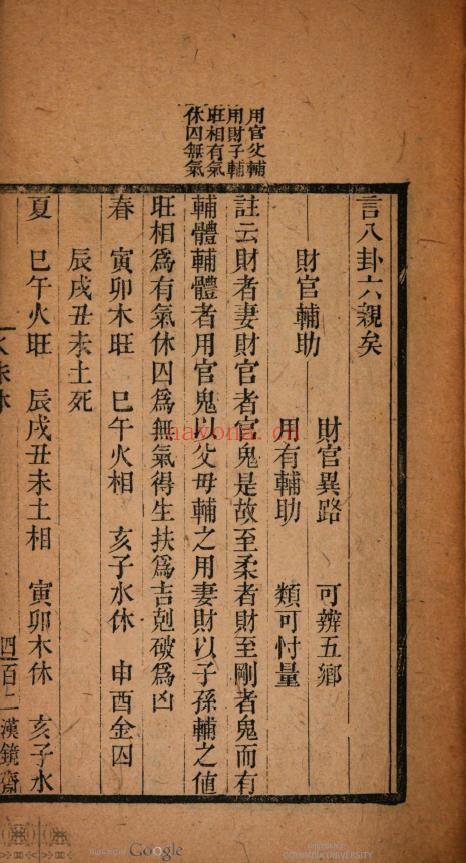 用官父輔
用財子輔
旺相有氣
休囚無氣
言八卦六親矣
財官輔助
財官異路 可辨五鄉
用有輔助 類可忖量
註云財者妻財官者官鬼是故至柔者財至剛者鬼而有
輔體輔體者用官鬼以父母輔之用妻財以子孫輔之值
旺相爲有氣休囚爲無氣得生扶爲吉剋破爲凶
春 寅卯木旺 巳午火相 亥子水休 申酉金囚
辰戌丑未土死
夏 巳午火旺 辰戌丑未土相 寅卯木休 亥子水
四百二 漢鏡齋
nayona.cn
Digitized by Google